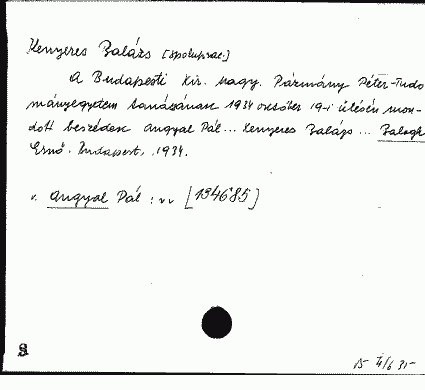 Kenyeres Balázs [spoluprac.]
A Budapesti kir. magy. Pázmány Péter-Tudo
mányegyetem tanácsának 1934 október 19-i ülésén mon-
dott beszédek Angyal Pál... Kenyeres Balázs... Balogh
Ernő. Budapest, 1934.
v. Angyal Pál : v v [194685]